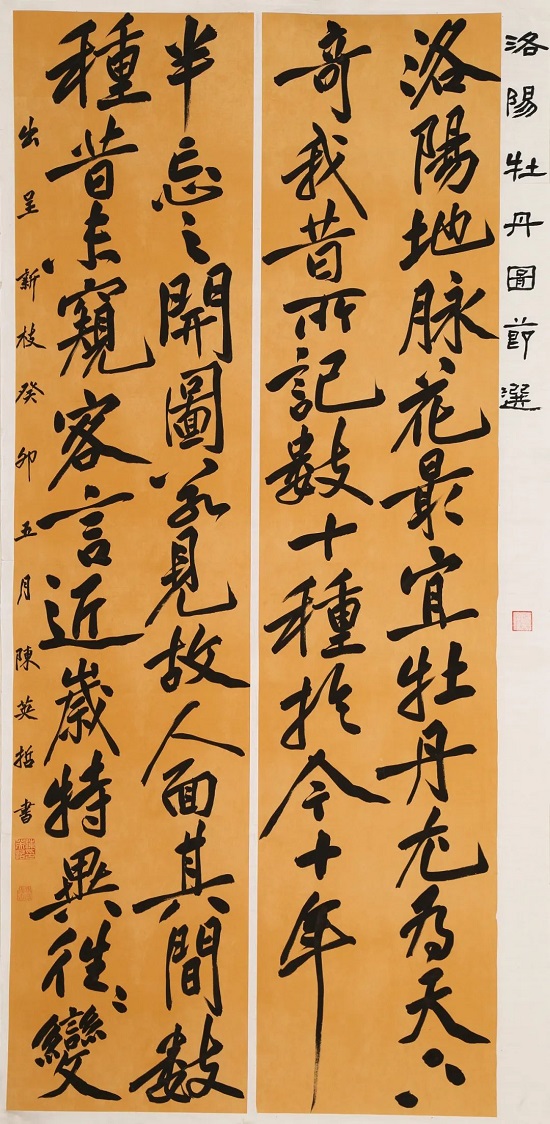 洛陽牡丹圖節選
洛陽地脉花最宜牡丹尤為天下
奇我昔所記數十種於今十年
半忘之開圖若見故人面其間數
種昔未窺客言近歲特異往〻變
出呈新枝癸卯五月陳英哲書